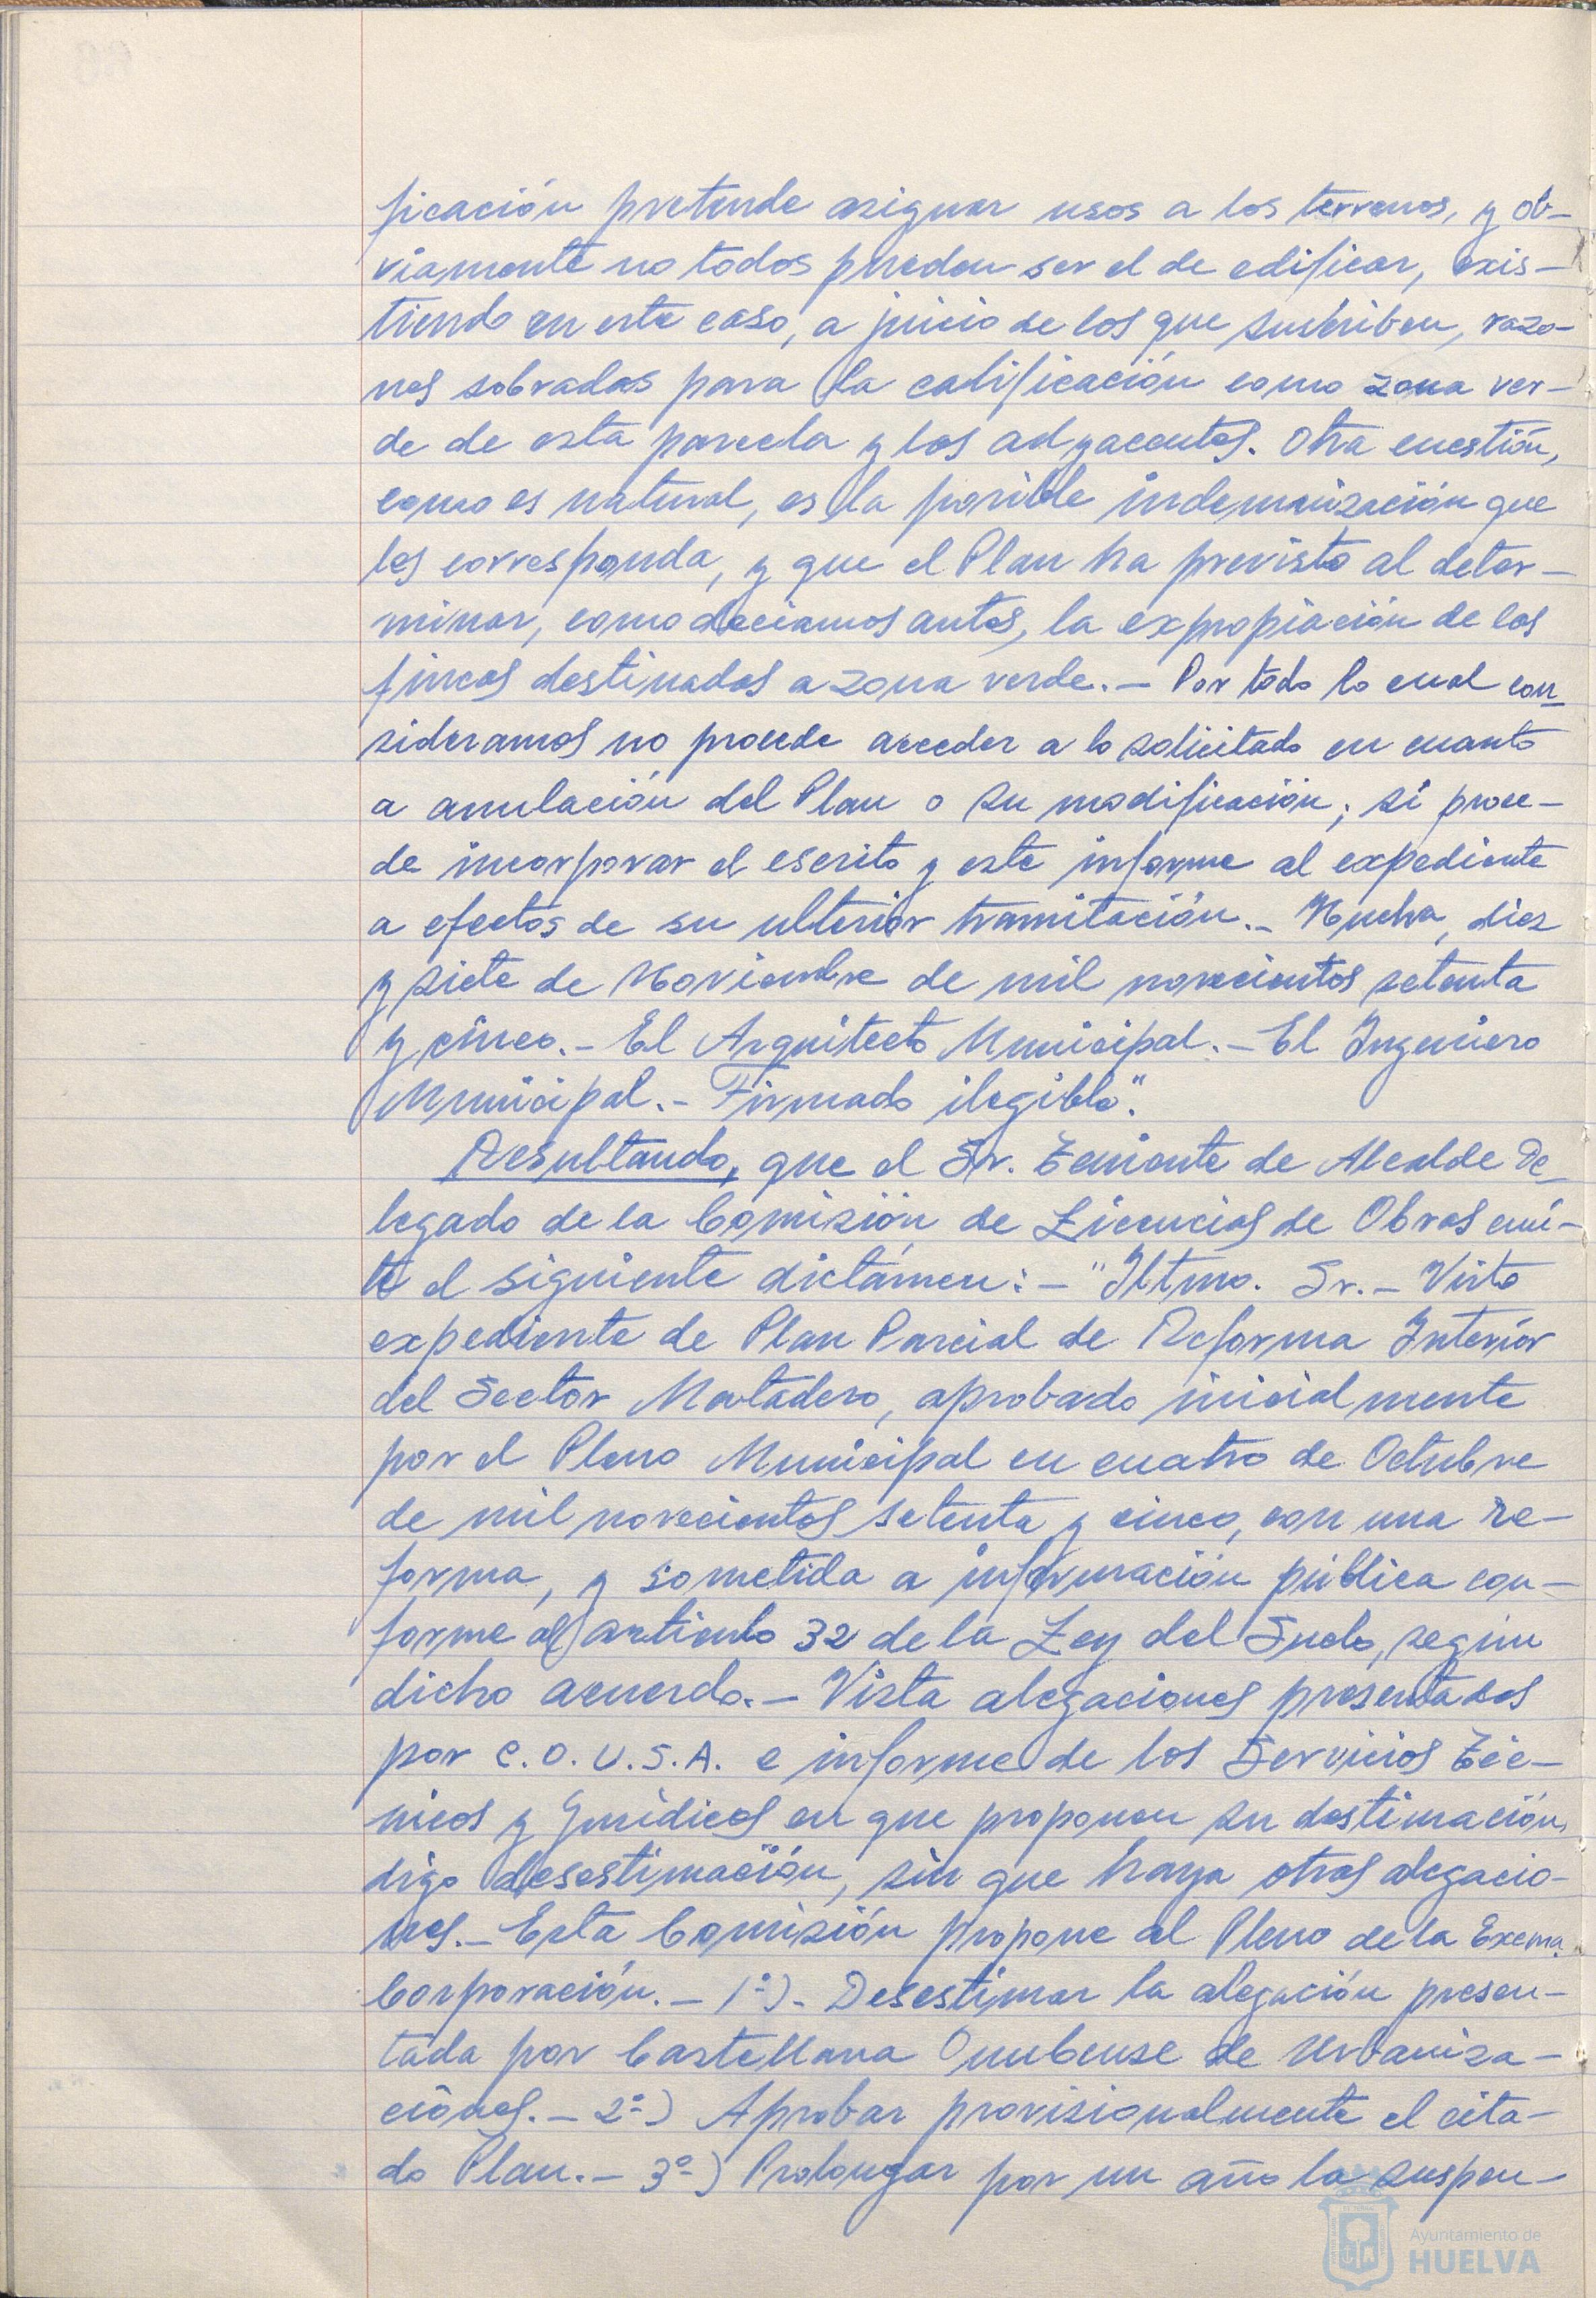 ficación pretende asignar usos a los terrenos, y ob-
viamente no todos pueden ser el de edificar, exis-
tiendo en este caso, a juicio de los que suscriben, razo-
nes sobradas para la calificación como zona ver-
de de esta parcela y las adyacentes. Otra cuestión,
como es natural, es la posible indemnización que
les corresponda, y que el Plan ha previsto al deter-
minar, como deciamos antes, la expropiación de las
fincas destinadas a zona verde.- Por todo lo cual con
sideramos no procede acceder a lo solicitado en cuanto
a anulación del Plan o su modificación; si proce-
de incorporar el escrito y este informe al expediente
a efectos de su ulterior tramitación.- Huelva, diez
y siete de Noviembre de mil novecientos setenta
y cinco.- El Arquitecto Municipal.- El Ingeniero
Municipal.- Firmado ilegible".
Resultando, que el Sr. Teniente de Alcalde De-
legado de la Comisión de Licencias de Obras emi-
te el siguiente dictámen:- "Iltmo. Sr.- Visto
expediente de Plan Parcial de Reforma Interior
del Sector Matadero, aprobado inicialmente
por el Pleno Municipal en cuatro de Octubre
de mil novecientos setenta y cinco, con una re-
forma, y sometida a información pública con-
forme al artículo 32 de la Ley del Suelo, según
dicho acuerdo.- Vista alegaciones presentadas
por C.O.U.S.A. e informe de los Servicios Téc-
nicos y Jurídicos en que proponen su destimación,
digo desestimación, sin que haya otras alegacio-
nes.- Esta Comisión propone al Pleno de la Excma.
Corporación.- 1º).- Desestimar la alegación presen-
tada por Castellana Onubense de Urbaniza-
ciones.- 2º-) Aprobar provisionalmente el cita-
do Plan.- 3º-) Prolongar por un año la suspen-
Ayuntamiento de
HUELVA